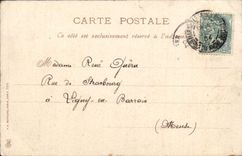 CARTE POSTALE
Ce côté est exclusivement réservé à l'adresse
Madame René
Rue de Strasbourg
à Ligny-en-Barrois
(Meuse)